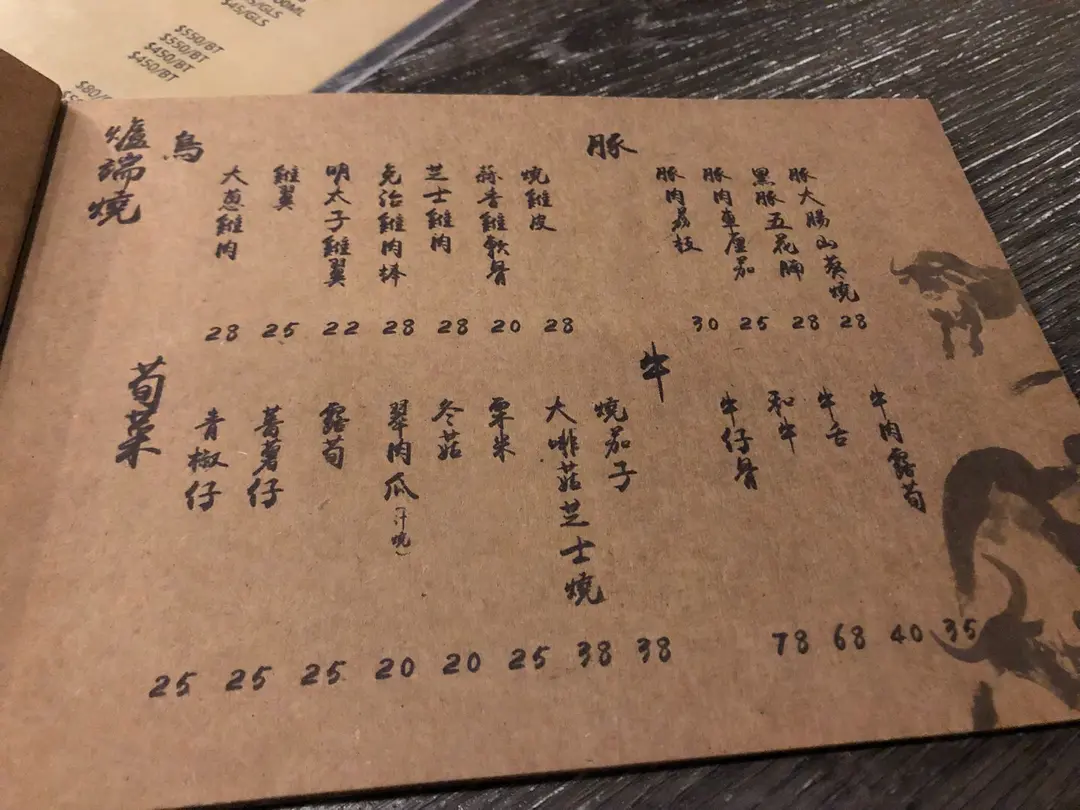 $45/GLS
$550/BT
$550/BT
$450/BT
爐端燒
鳥
大蔥雞肉
雞翼
明太子雞翼
免治雞肉棒
芝士雞肉
蒜香雞軟骨
燒雞皮
28 25 22 28 28 20 28
豚
豚肉荔枝
豚肉車厘茄
黑豚五花腩
豚大腸山葵燒
30 25 28 28
荀菜
青椒仔
蕃薯仔
露荀
翠肉瓜(汁燒)
冬菇
粟米
大啡菇芝士燒
燒茄子
25 25 25 20 20 25 38 38
牛
牛仔骨
和牛
牛舌
牛肉露荀
78 68 40 35